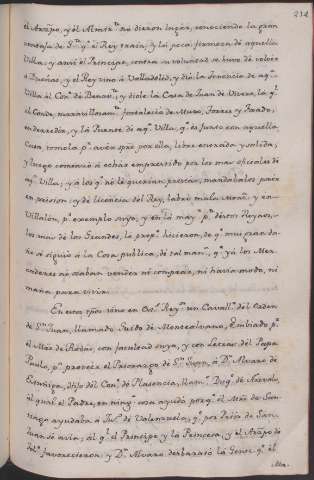 214
el Arçõpo, y el Almirᵗᵉ no dieron lugar, conociendo la gran
ventaja de gᵗᵉ qᵉ el Rey traía, y la poca firmeza de aquella
Villa, y ansí el Príncipe, contra su voluntad se huvo de volver
a Dueñas, y el Rey vino a Valladolid, y dió la tenencia de aqᵃ
Villa al Conᵈᵉ de Benavᵗᵉ, y diole la Casa de Juan de Vivero, la qˡ
el Conde, maravillosamᵗᵉ fortaleció de Muro, Torres y Fosado,
en derredor, y la Puente de aqᵃ Villa, qᵉ es junto con aquella
Casa, tomola pᵃ aver spre por ella, libre entrada, y salida,
y luego comenzó a echar emprestido por los mas oficiales de
aqᵃ Villa, y a los qᵉ no le querían prestar, mandabalos poner
en prision, y de licencia del Rey, labró mala Mon.ᵃ y en
Villalón, pʳ exemplo suyo, y en la mayʳ pᵉ destos Reynos,
los mas de los Grandes, lo propº hicieron, de qᵉ mui gran da-
ño se siguió a la Cosa publica, de tal manᵃ, qᵉ ya los Mer-
caderes no osaban vender ni comprar, ni havia modo, ni
maña para vivir.
En estos tpõs vino en Casᵗᵃ Reyⁿᵒ un Cavallº del Orden
de Sⁿ Juan, llamado Guido de Monte Arnaldo, embiado pʳ
el Mãe de Rodas, con facultad suya, y con Letras del Papa
Paulo, pᵃ proveer el Priorazgo de Sⁿ Juan, á Dⁿ Alvaro de
Estuñiga, Hijo del Conᵈᵉ de Plasencia, llamº Duqᵉ de Arevalo,
al qual el Padre, en ningᵃ cosa ayudó, porqᵉ el Mãe de San-
tiago ayudaba á Juº de Valenzuela, qᵉ por Prior de San
Juan se avía, al qˡ el Príncipe y la Princesa, y el Arçõpo de
Tolº favorecieron, y Dⁿ Alvaro desbarató la Gente qᵉ el